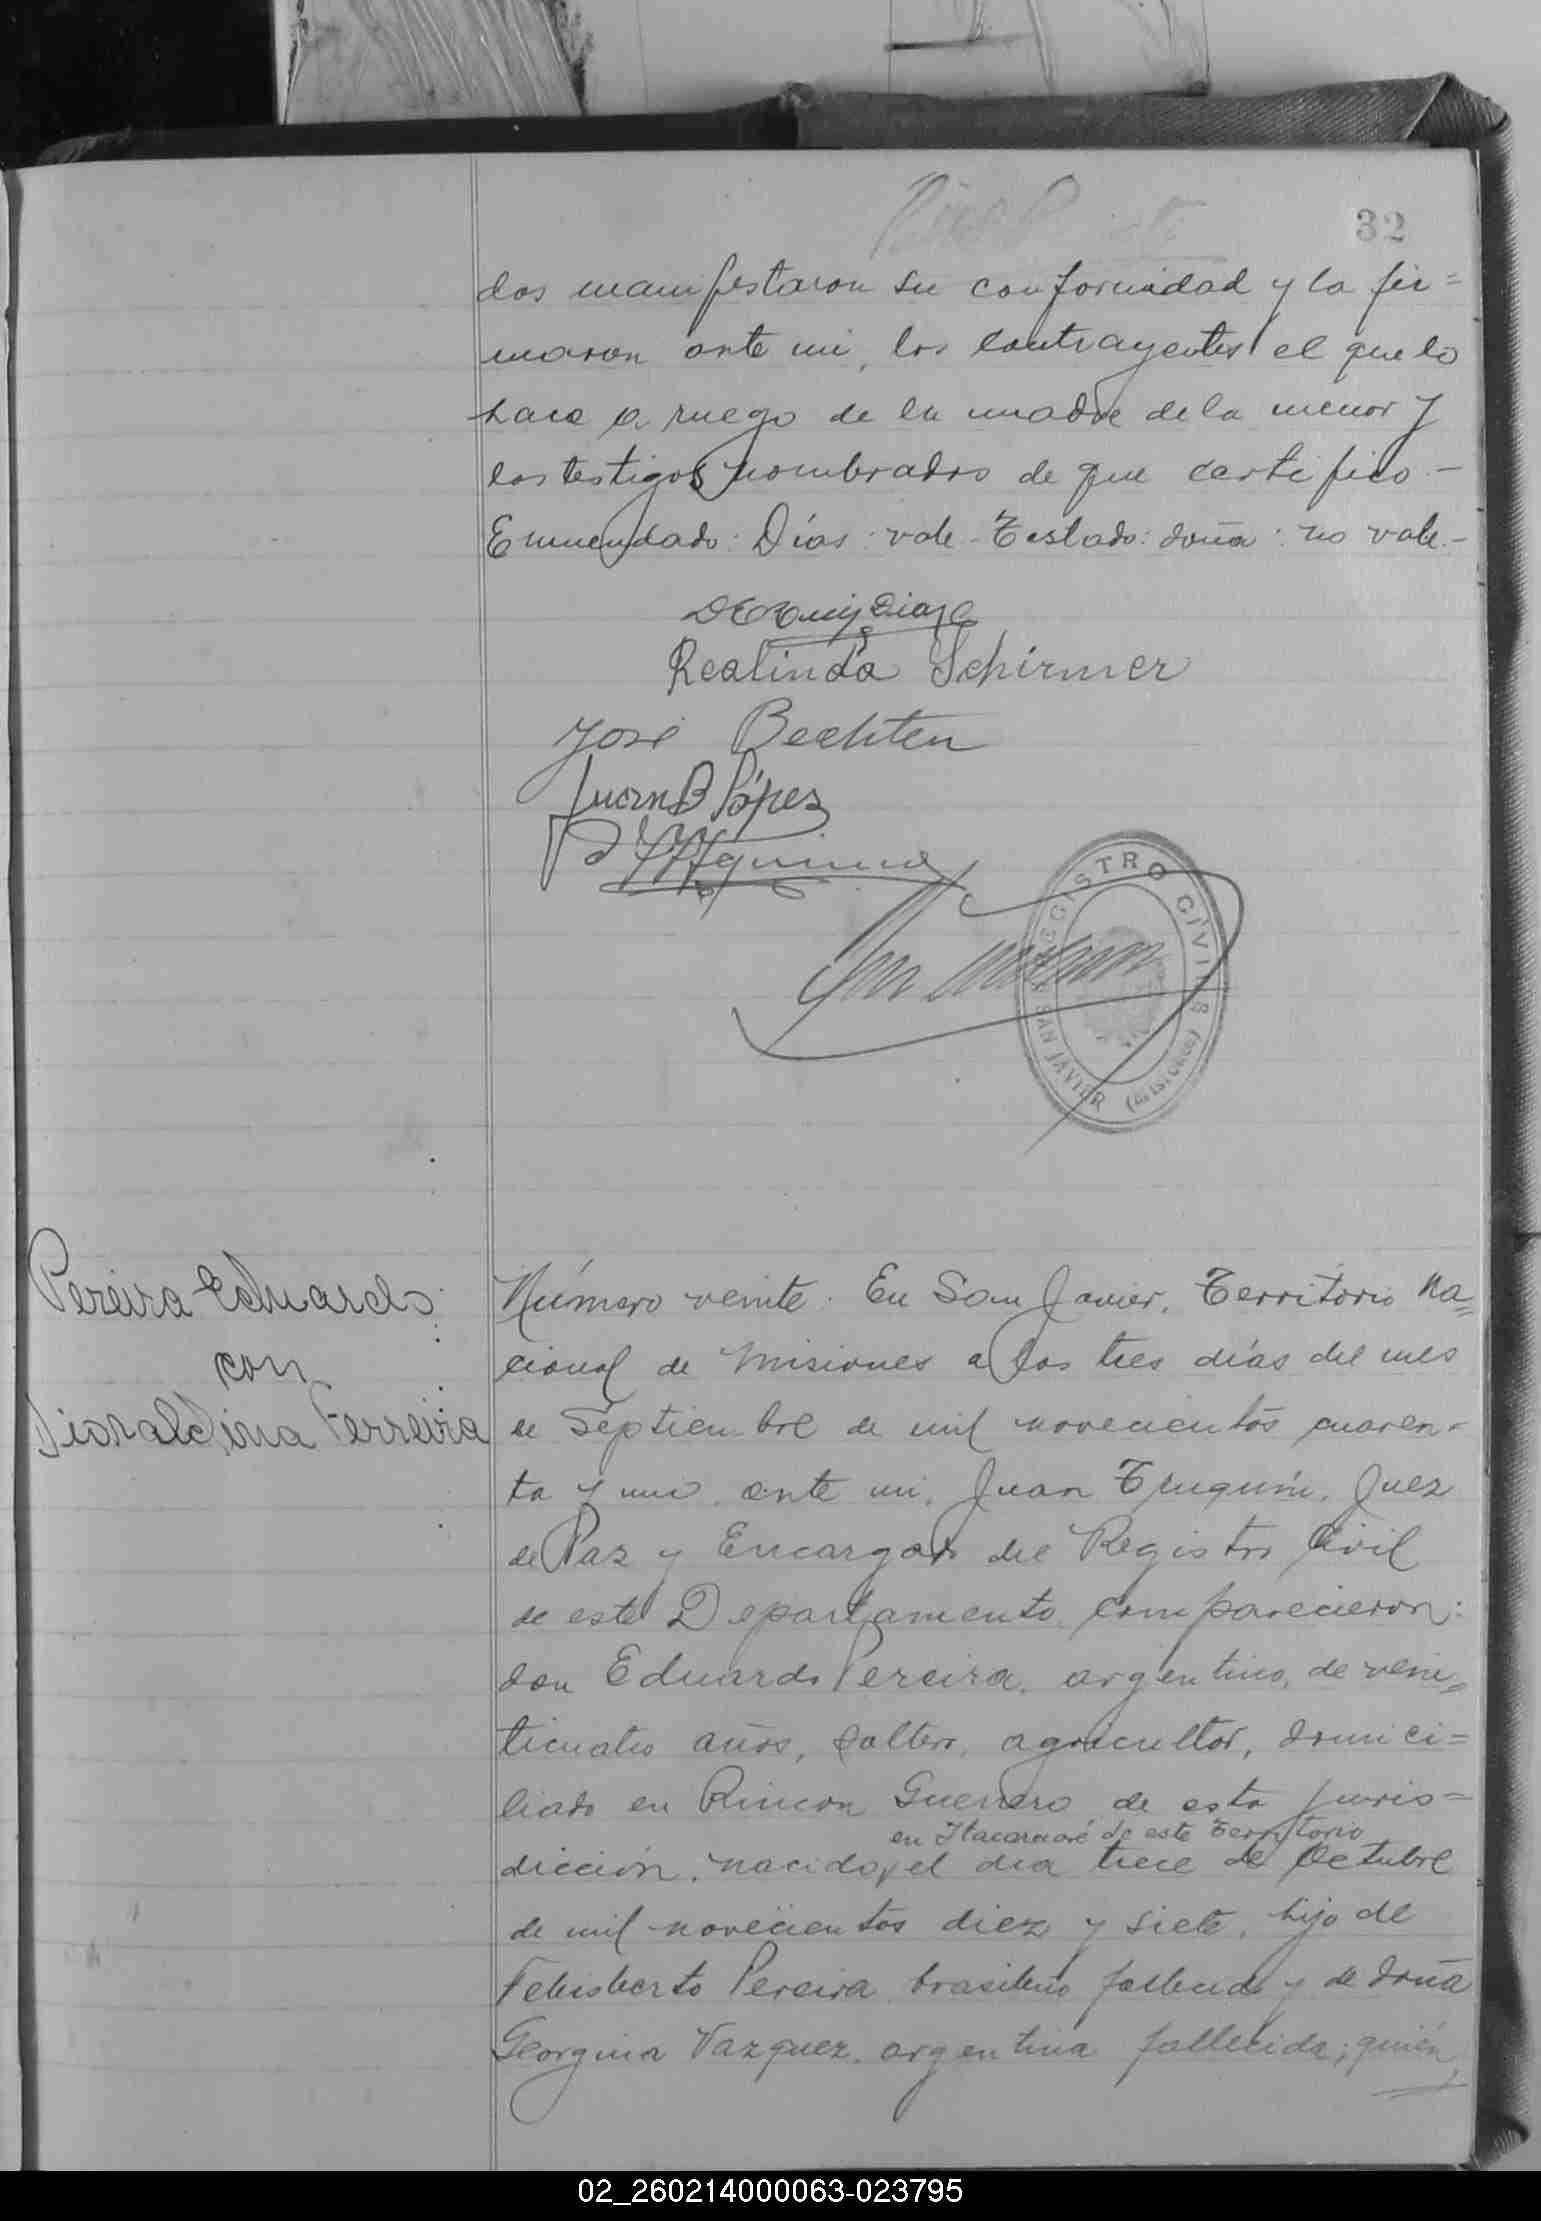 32
dos manifestaron su conformidad y la fir=
maron ante mi, los contrayentes el que lo
hace a ruego de la madre de la menor y
los testigos nombrados de que certifico.-
Enmendado: Días: vale - Testado: doña: no vale.-
Realinda Schirmer
José Bechten
Juan B López
REGISTRO CIVIL
SAN JAVIER (MISIONES)
Pereira Eduardo
con
Ferreira
Número veinte. En San Javier, Territorio Na=
cional de Misiones a los tres días del mes
de Septiembre de mil novecientos cuaren-
ta y uno, ante mi, Juan Juez
de Paz y Encargado del Registro Civil
de este Departamento comparecieron:
don Eduardo Pereira, argentino, de vein=
ticuatro años, soltero, agricultor, domici=
liado en Rincon Guerrero de esta juris=
en Itacaruaré de este Territorio
dicción, nacido, el dia trece de Octubre
de mil novecientos diez y siete, hijo de
Felisberto Pereira, brasileño fallecido y de doña
Georgina Vazquez, argentina fallecida; quién
02_260214000063-023795